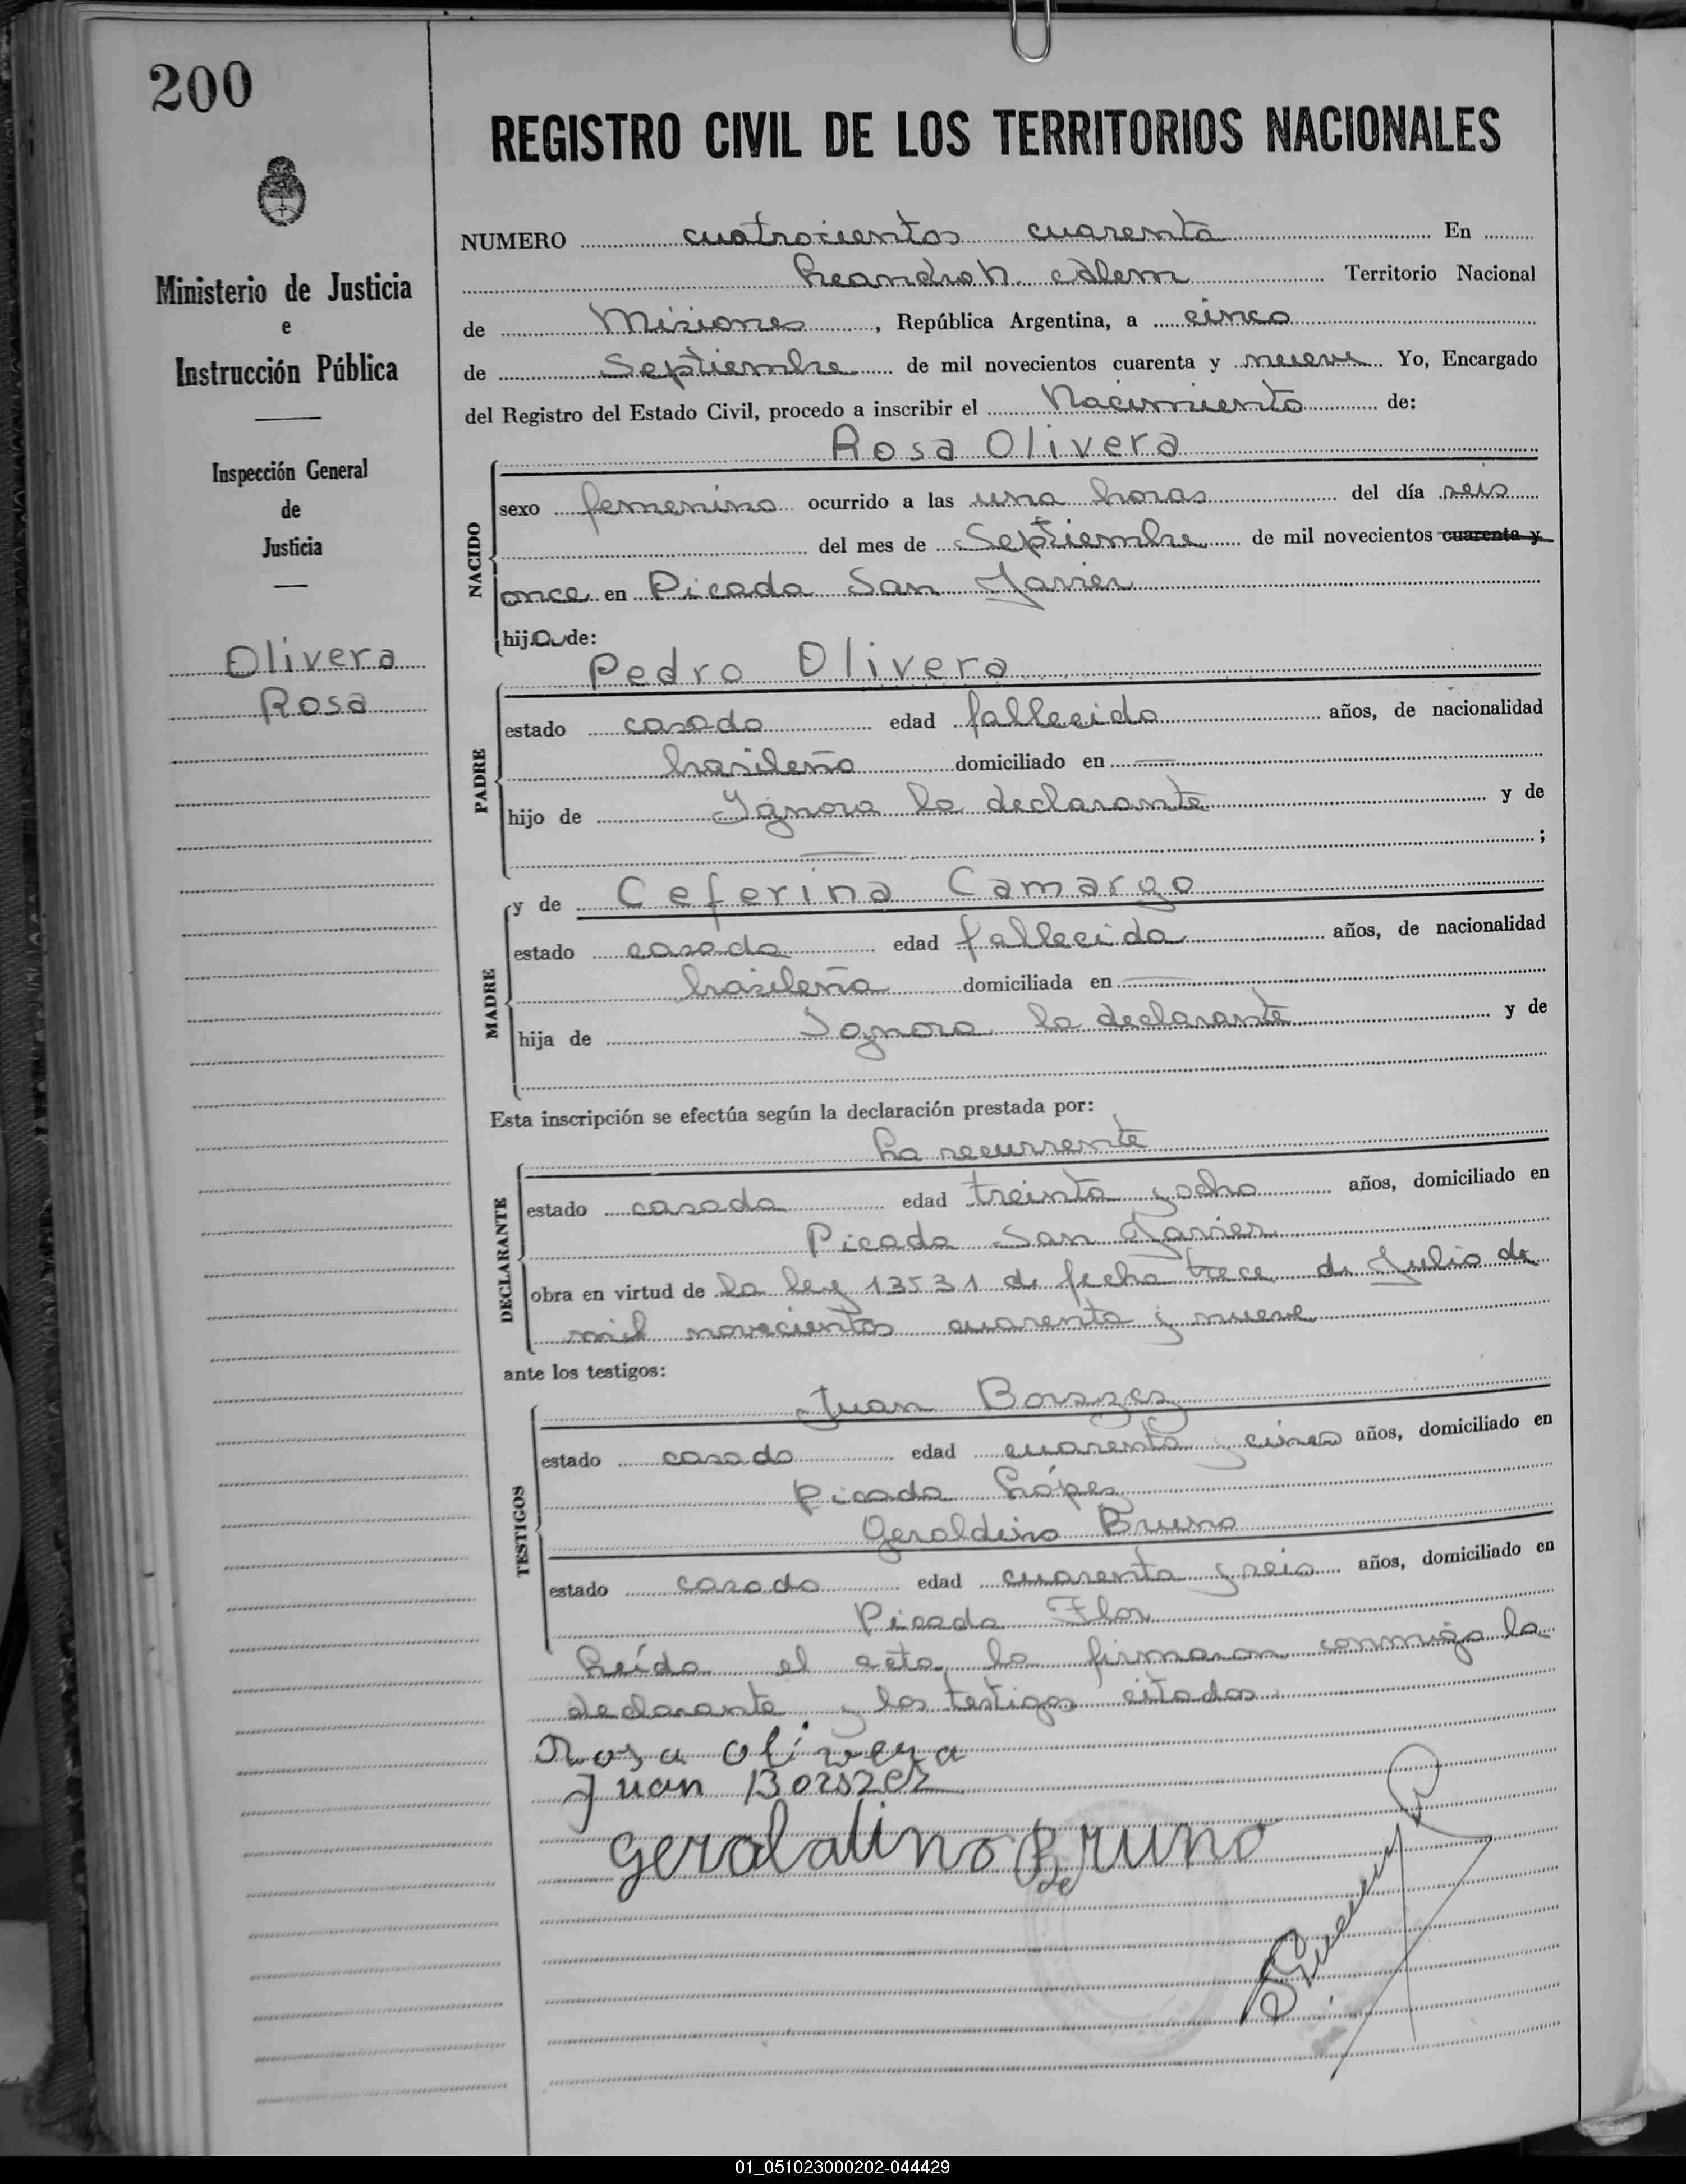 200
REGISTRO CIVIL DE LOS TERRITORIOS NACIONALES
Ministerio de Justicia
e
Instrucción Pública
Inspección General
de
Justicia
Olivera
Rosa
NUMERO cuatrocientos cuarenta En
Leandro N. Alem Territorio Nacional
de Misiones, República Argentina, a cinco
de Septiembre de mil novecientos cuarenta y nueve Yo, Encargado
del Registro del Estado Civil, procedo a inscribir el Nacimiento de:
Rosa Olivera
NACIDO
sexo femenino ocurrido a las una horas del día seis
del mes de Septiembre de mil novecientos cuarenta y
once en Picada San Javier
hija de:
Pedro Olivera
PADRE
estado casado edad fallecido años, de nacionalidad
brasileño domiciliado en
hijo de Ignora la declarante y de
;
y de Ceferina Camargo
MADRE
estado casada edad fallecida años, de nacionalidad
brasileña domiciliada en
hija de Ignora la declarante y de
Esta inscripción se efectúa según la declaración prestada por:
La recurrente
DECLARANTE
estado casada edad treinta y ocho años, domiciliado en
Picada San Javier
obra en virtud de la ley 13531 de fecha trece de Julio de
mil novecientos cuarenta y nueve
ante los testigos:
Juan Borszez
TESTIGOS
estado casado edad cuarenta y cinco años, domiciliado en
Picada López
Geraldino Bruno
estado casado edad cuarenta y seis años, domiciliado en
Picada Flor
Leída el acta, la firmaron conmigo la
declarante y los testigos citados.
Rosa Olivera
Juan Borszez
Geraldino Bruno
de
01_051023000202-044429